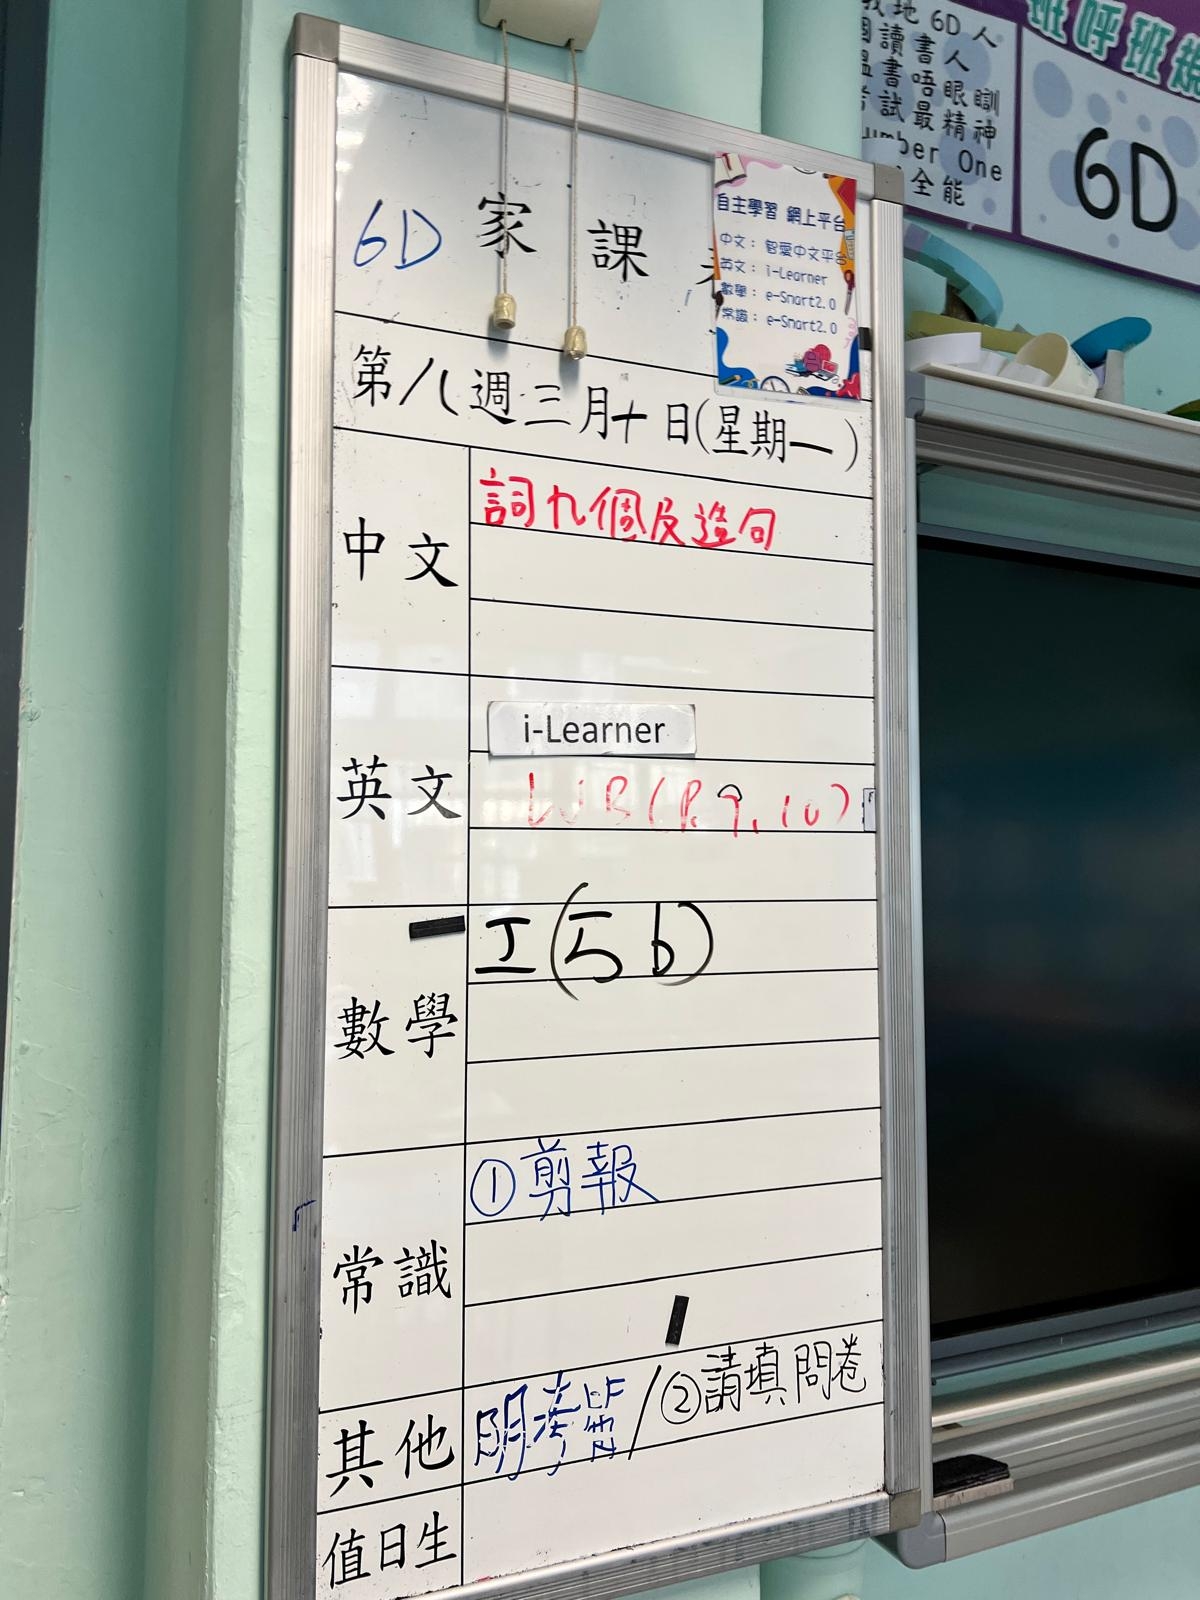 6D 家課
自主學習 網上平台
中文： 智愛中文平台
英文： i-Learner
數學： e-Smart2.0
常識： e-Smart2.0
第八週三月十日(星期一)
中文
詞九個及造句
英文
i-Learner
WB(P.9,10)
數學
工(5b)
常識
①剪報
其他
明考/②請填問卷
值日生
地6D人
讀書人
書唔眼瞓
試最精神
umber One
全能
班呼班
6D